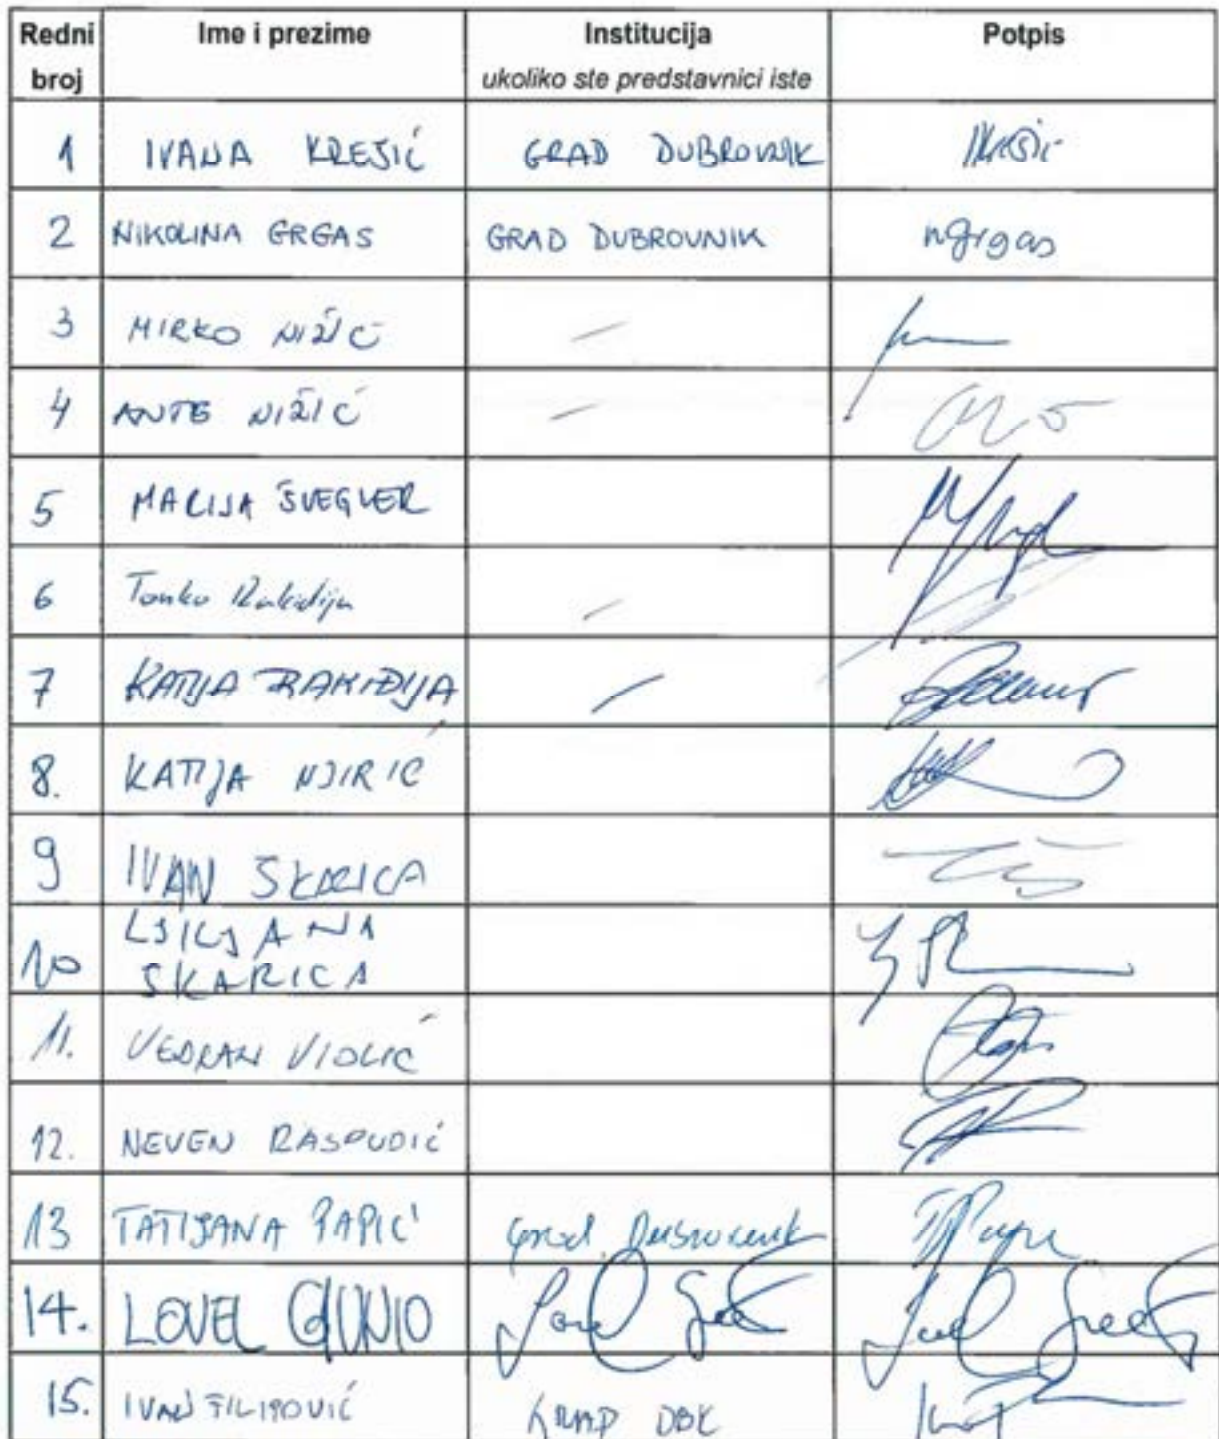 Redni broj Ime i prezime Institucija Potpis
ukoliko ste predstavnici iste
1 IVANA KREŠIĆ GRAD DUBROVNIK
2 NIKOLINA GRGAS GRAD DUBROVNIK ngrgas
3 MIRKO NIŽIĆ
4 ANTE NIŽIĆ
5 MARIJA ŠVEGLER
6 Tonko Rakidija
7 KATIJA RAKIDIJA
8. KATIJA NJIRIĆ
9 IVAN SKARICA
10 LJILJANA
SKARICA
11. VEDRAN VIOLIĆ
12. NEVEN RASPUDIĆ
13 TATIJANA PAPIĆ Grad Dubrovnik
14. LOVEL GIUNIO
15. IVAN FILIPOVIĆ GRAD DBK